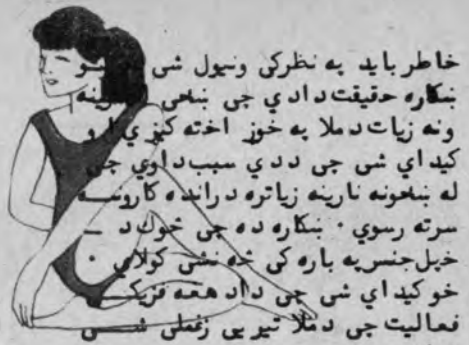 خاطر باید په نظرکی ونیول شی
ښکاره حقیقت دادي جی ښځی
ونه زیات دملا په خوږ اخته کیږي
کیدای شی جی ددي سبب داوي جی
له ښځونه نارینه زیاتره درانده کارو
سرته رسوي ۰ ښکاره ده جی څوك د
خپل جنس په باره کی څه نشی کولای ۰
خو کیدای شی جی داد هغه فزیک
فعالیت جی دملا تیر یی زغملی شی